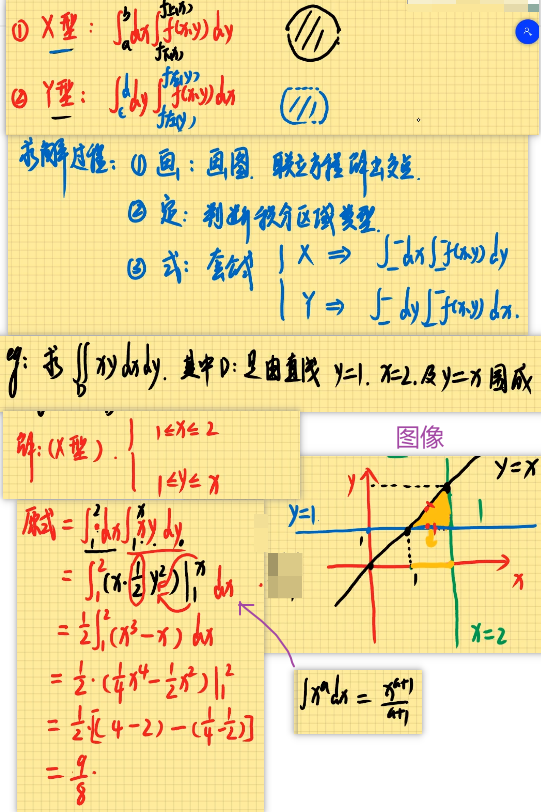 ① X型: ∫_a^b dx ∫_{f₁(x)}^{f₂(x)} f(x,y) dy
② Y型: ∫_c^d dy ∫_{f₂(y)}^{f₁(y)} f(x,y) dx
求解过程: ① 画: 画图. 联立方程 解出交点.
② 定: 判断积分区域类型.
③ 式: 套公式 { X ⇒ ∫_-^- dx ∫_-^- f(x,y) dy
Y ⇒ ∫_-^- dy ∫_-^- f(x,y) dx.
eg: 求 ∬_D xy dxdy. 其中D: 是由直线 y=1. x=2. 及 y=x 围成
解: (X型). { 1≤x≤2
1≤y≤x
图像
y=x
y
y=1
1
1
x
x=2
原式 = ∫_1^2 dx ∫_1^x xy dy
= ∫_1^2 (x·½y²)|_1^x dx
= ½∫_1^2 (x³-x) dx
= ½·(¼x⁴-½x²)|_1^2
= ½·[(4-2)-(¼-½)]
= 9/8.
∫x^a dx = x^{a+1}/(a+1)